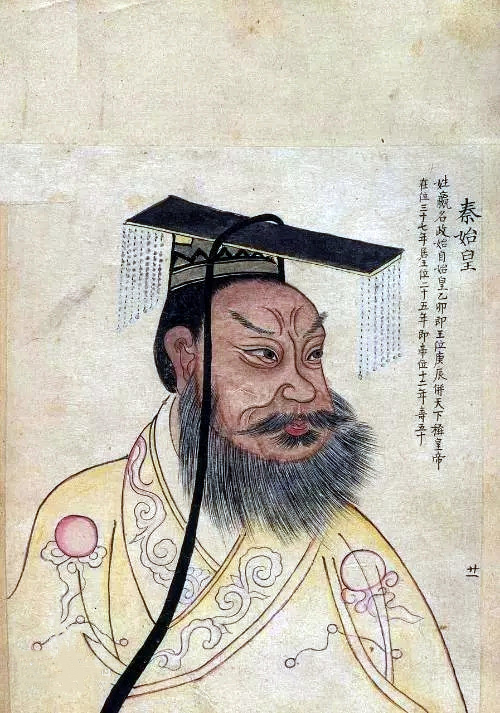 秦始皇
姓嬴名政始自始皇乙卯即王位庚辰併天下稱皇帝
在位三十七年居王位二十五年即帝位十二年壽五十
廿一